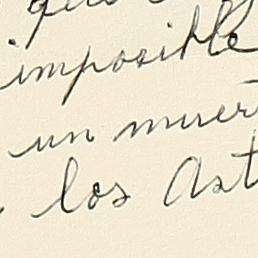 imposible
un muer
los Ast